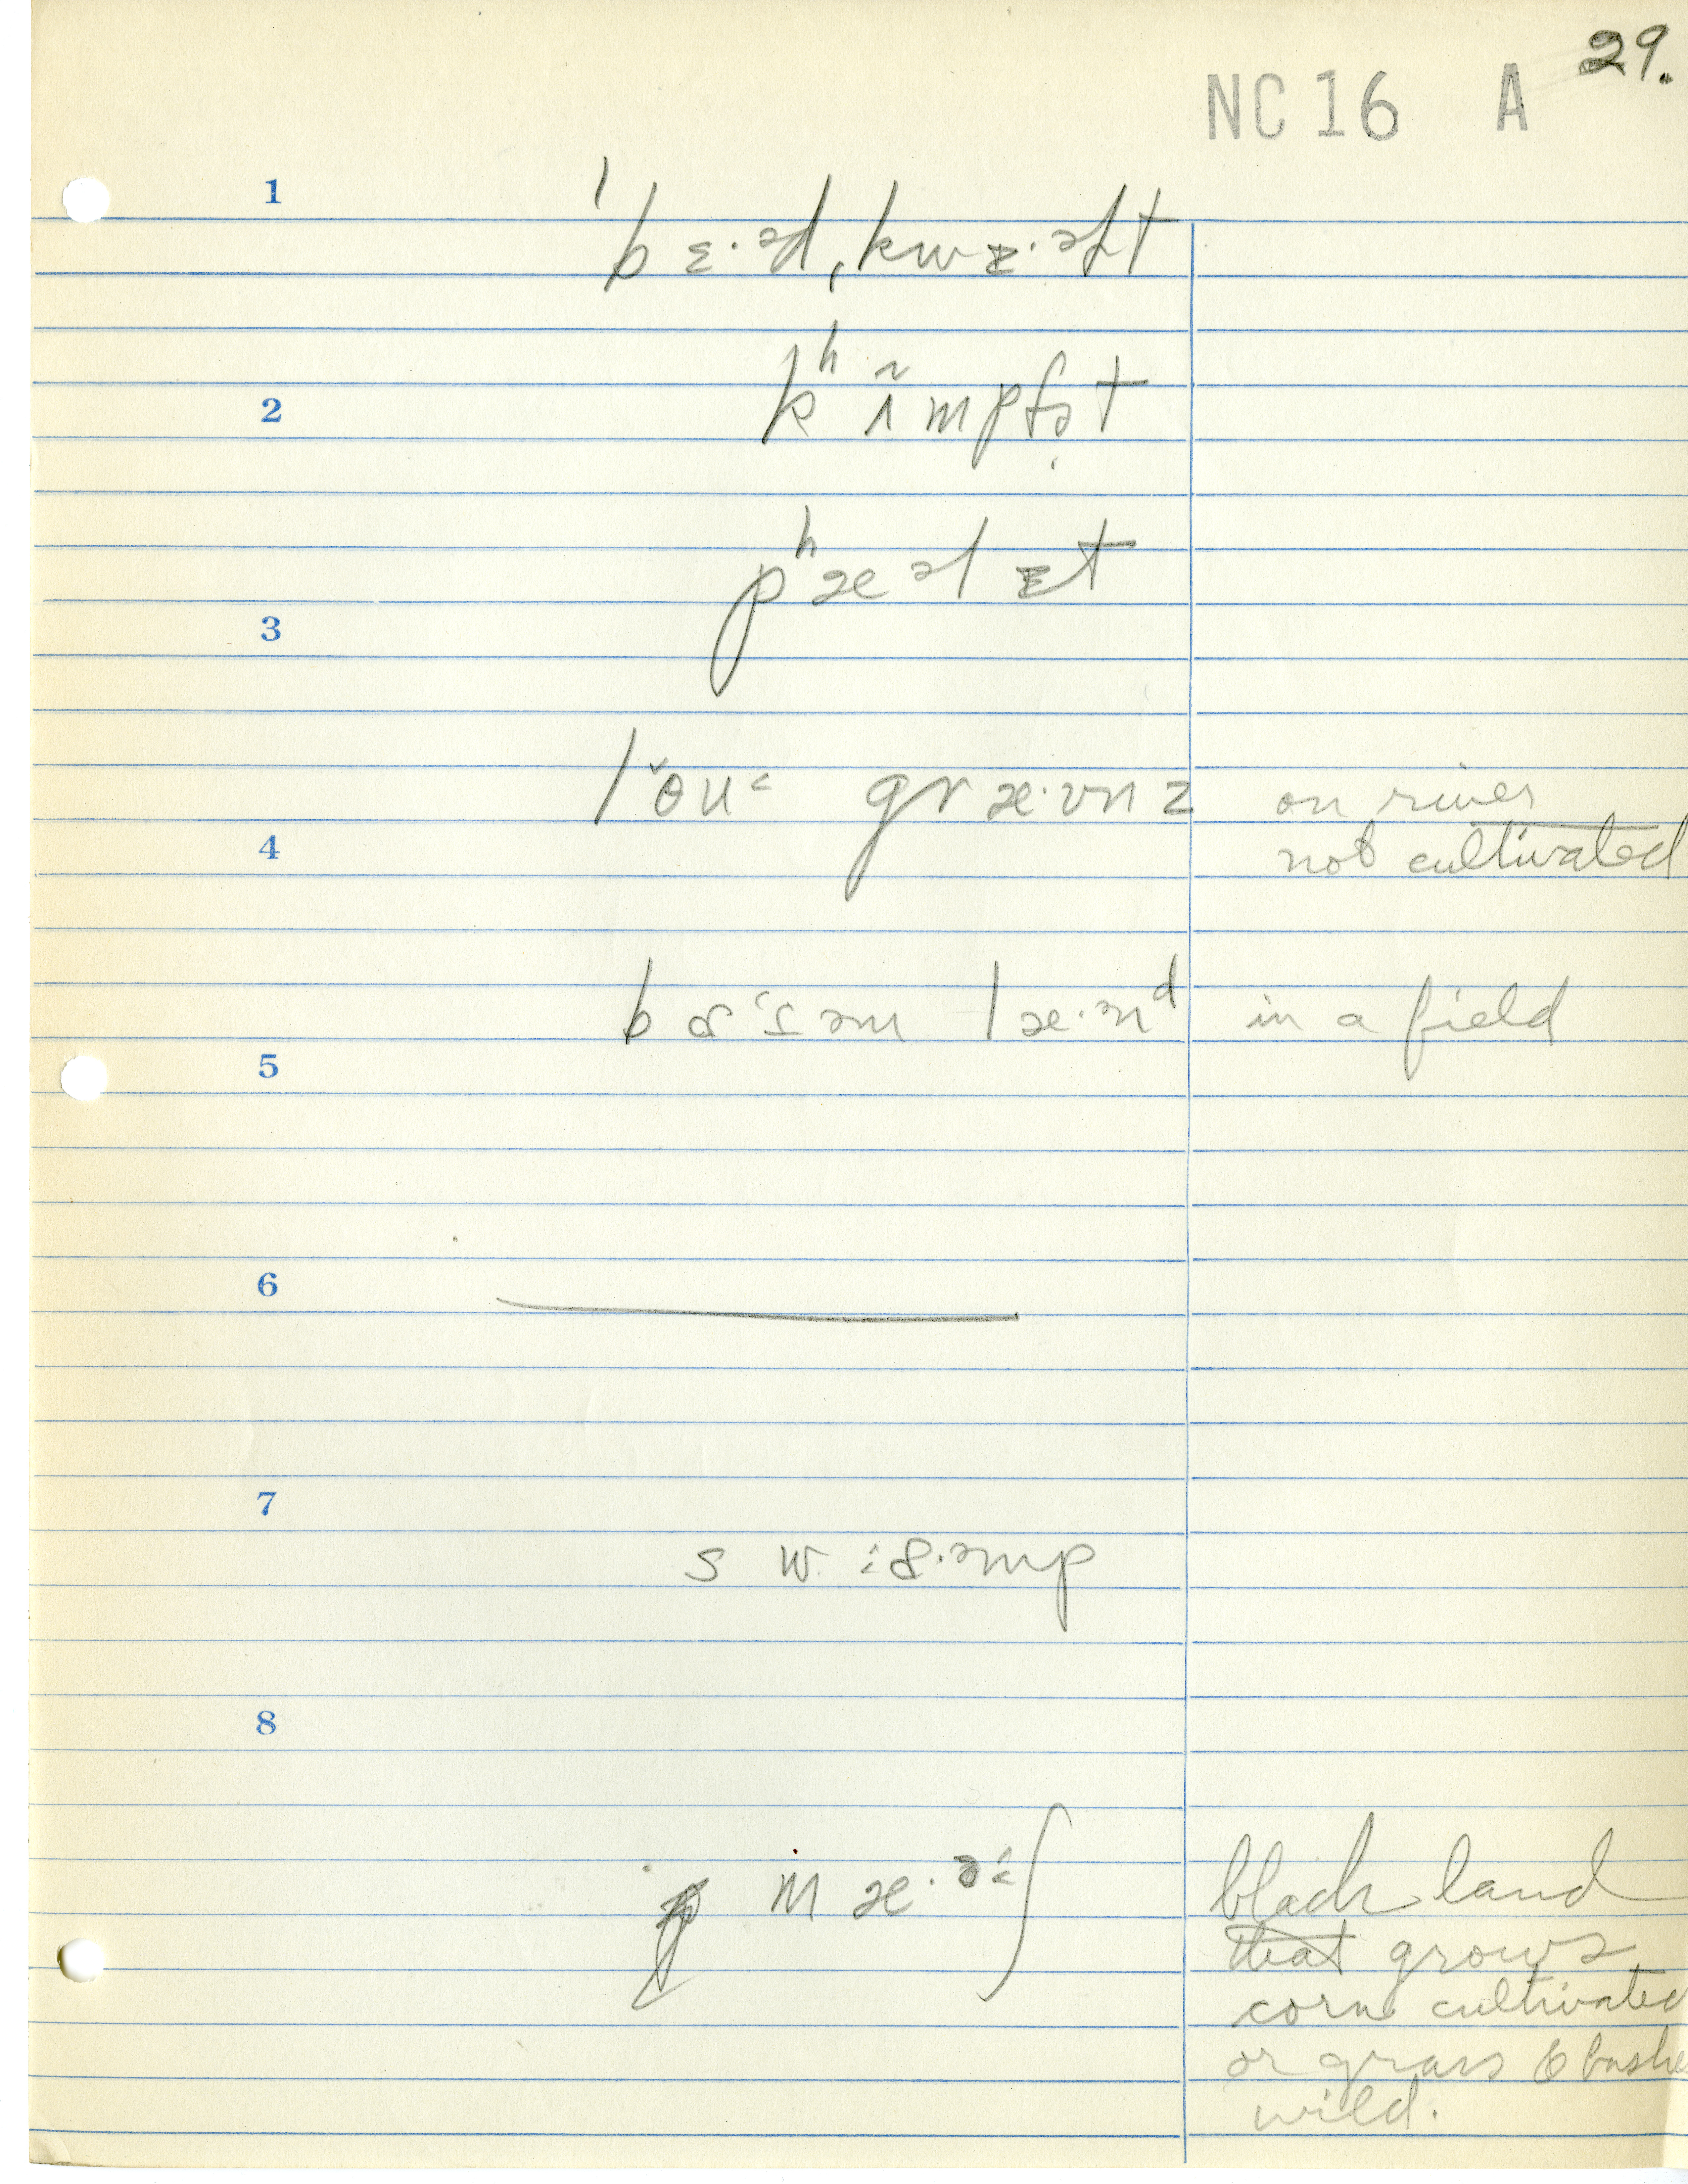 29.
NC 16 A
1
ˈbɛ·əd ˌkwɛ·əlt
2
kʰɪ̃mpfə̣t
3
pʰæəlɛt
lˇɵu˂ græ·ʊnz on river
4 not cultivated
bɑˑsəm læ·nᵈ in a field
5
6
7
sw ɑ·əmp
8
mæ·ə˂ʃ black land
that grows
corn cultivated
or grass & bushe
wild.